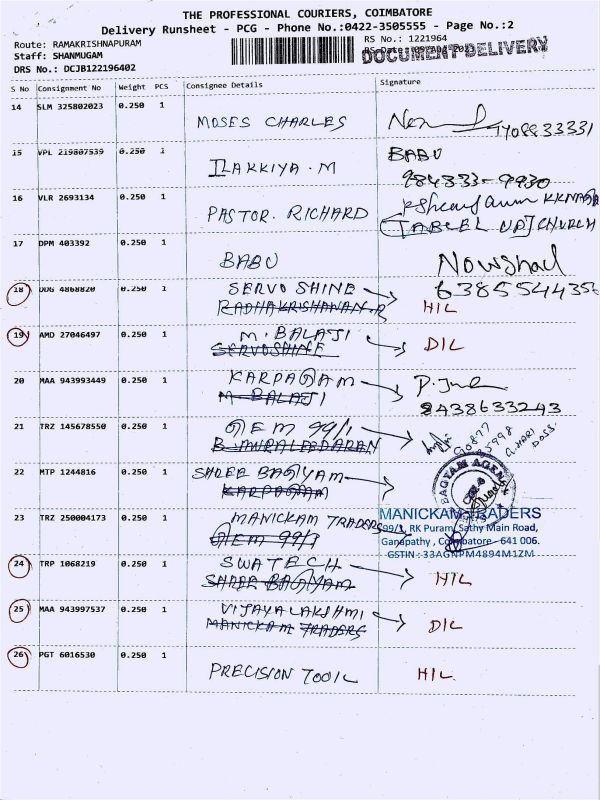 THE PROFESSIONAL COURIERS, COIMBATORE
Delivery Runsheet - PCG - Phone No.:0422-3505555 - Page No.:2
Route: RAMAKRISHNAPURAM
RS No.: 1221964
Staff: SHANMUGAM
DOCUMENT DELIVERY
DRS No.: DCJB122196402
S No Consignment No Weight PCS Consignee Details Signature
14 SLM 325802023 0.250 1 MOSES CHARLES
15 VPL 219807539 0.250 1 ILAKKIYA.M BABU
984333-9930
16 VLR 2693134 0.250 1 PASTOR. RICHARD
CHURCH
17 DPM 403392 0.250 1 BABU Nowshad
6385544356
18 DDG 4868820 0.250 1 SERVO SHINE HIL
RADHAKRISHANAN.R
19 AMD 27046497 0.250 1 M. BALAJI DIL
SERVOSHINE
20 MAA 943993449 0.250 1 KARPAGAM
M. BALAJI 8438633243
21 TRZ 145678550 0.250 1 GEM 99/1
B. MURALEEDARAN
22 MTP 1244816 0.250 1 SHREE BAGYAM
KARPAGAM
BAGYAM AGENC
23 TRZ 250004173 0.250 1 MANICKAM TRADERS
GEM 99/1
MANICKAM TRADERS
99/1, RK Puram, Sathy Main Road,
Ganapathy, Coimbatore - 641 006.
GSTIN : 33AGNPM4894M1ZM
24 TRP 1068219 0.250 1 SWATECH HIL
SHREE BAGYAM
25 MAA 943997537 0.250 1 VIJAYALAKSHMI DIL
MANICKAM TRADERS
26 PGT 6016530 0.250 1 PRECISION TOOIL HIL.